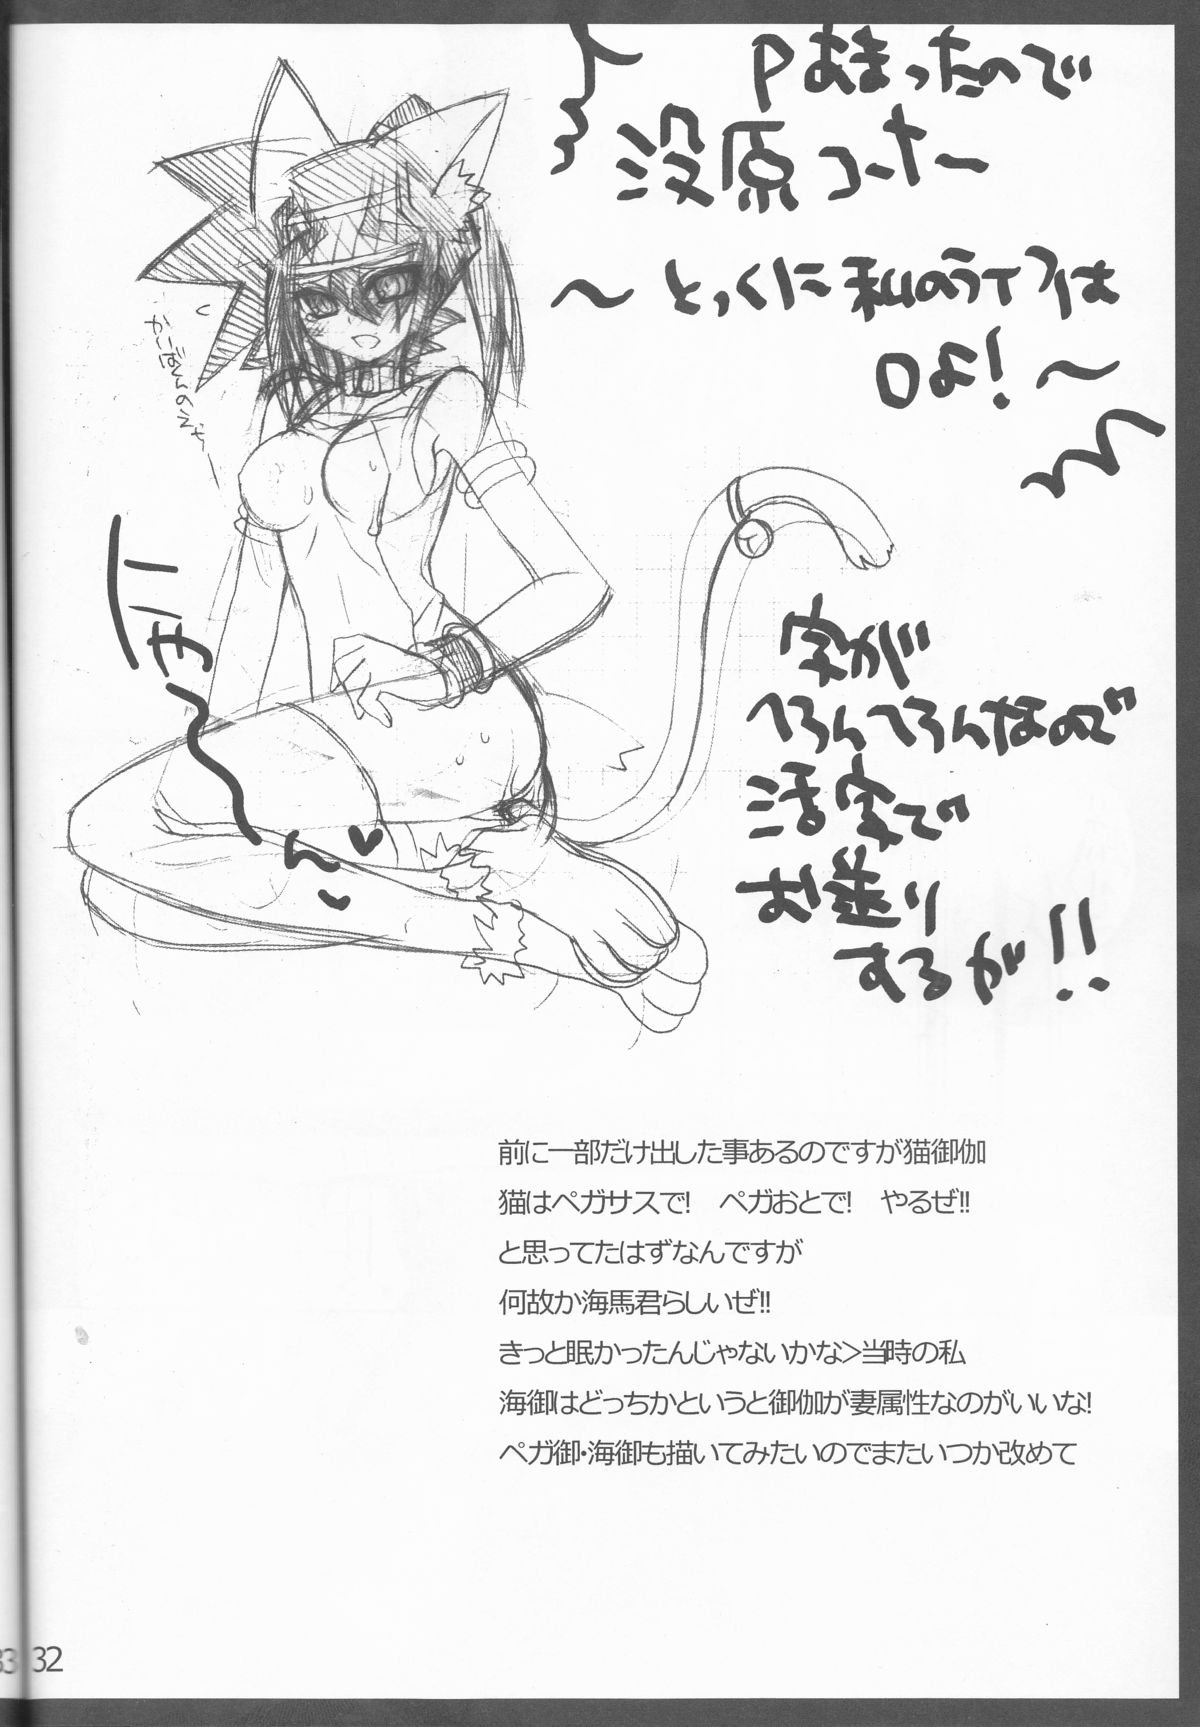 Pあまったので
没原コーナー
～とっくに私のライフは
0よ!～
字が
へろんへろんなので
活字で
お送り
するが!!
かいばんのえやー
にゃ～ん
前に一部だけ出した事あるのですが猫御伽
猫はペガサスで! ペガおとで! やるぜ!!
と思ってたはずなんですが
何故か海馬君らしいぜ!!
きっと眠かったんじゃないかな>当時の私
海御はどっちかというと御伽が妻属性なのがいいな!
ペガ御・海御も描いてみたいのでまたいつか改めて
32